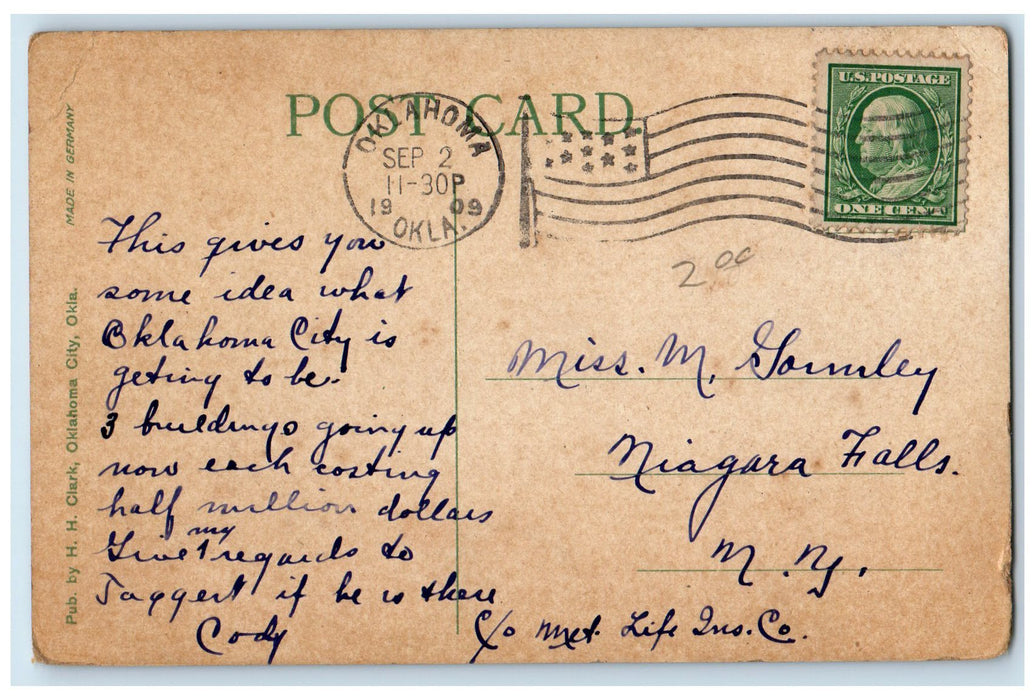 POST CARD
MADE IN GERMANY
Pub. by H. H. Clark, Oklahoma City, Okla.
OKLAHOMA
SEP 2
11-30P
1909
OKLA.
U.S. POSTAGE
ONE CENT
2 00
This gives you
some idea what
Oklahoma City is
geting to be.
3 buildings going up
now each costing
half million dollars
Give my regards to
Taggert if he is there
Cody
Miss. M. Gormley
Niagara Falls.
N. Y.
C/o Met. Life Ins. Co.